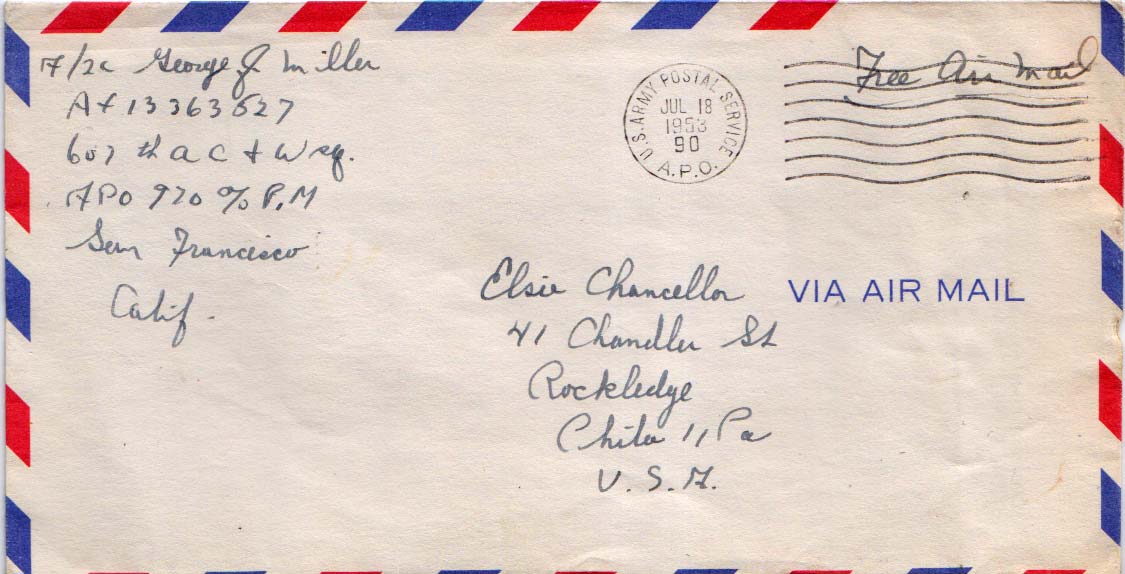 A/2c George J. Miller
AF 13363527
607th A C & W sq.
APO 970 % P.M
San Francisco
Calif.
U.S. ARMY POSTAL SERVICE
JUL 18
1953
90
A.P.O.
Free Air Mail
Elsie Chancellor
VIA AIR MAIL
41 Chandler St
Rockledge
Phila 11 Pa
U. S. A.